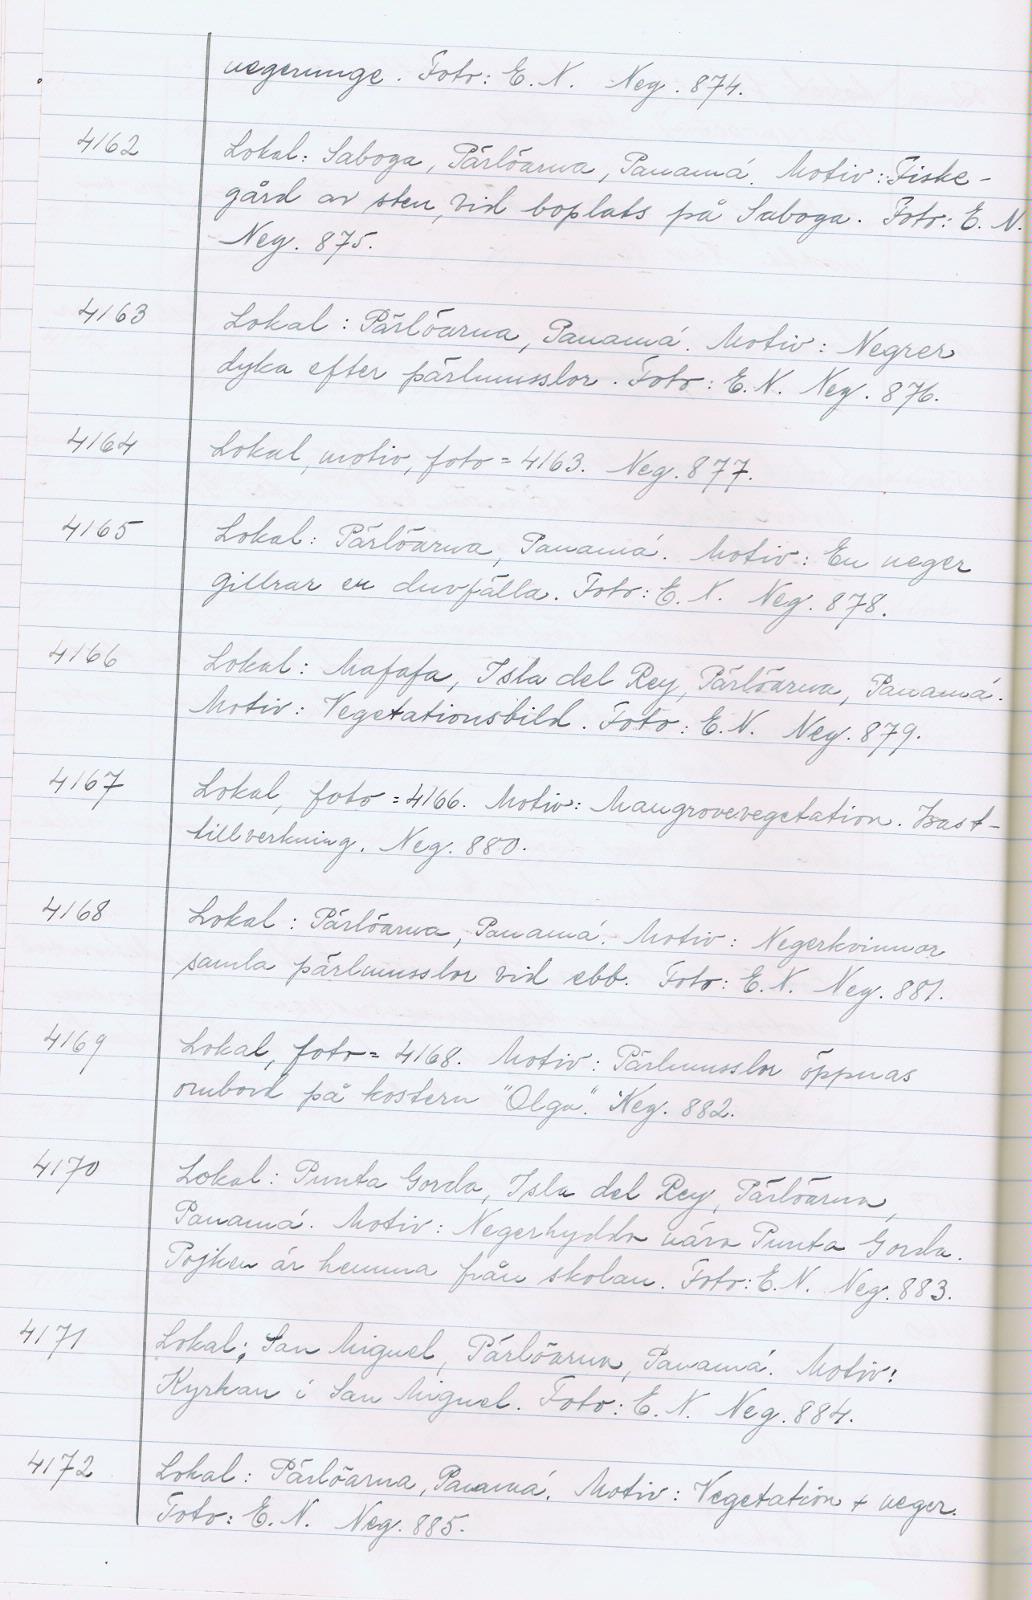 negerunge. Foto: E. N. Neg. 874.
4162 Lokal: Saboga, Pärlöarna, Panamá. Motiv: Fiske-
gård av sten, vid boplats på Saboga. Foto: E. N.
Neg. 875.
4163 Lokal: Pärlöarna, Panamá. Motiv: Negrer
dyka efter pärlmusslor. Foto: E. N. Neg. 876.
4164 Lokal, motiv, foto = 4163. Neg. 877.
4165 Lokal: Pärlöarna, Panamá. Motiv: En neger
gillrar en duvfälla. Foto: E. N. Neg. 878.
4166 Lokal: Mafafa, Isla del Rey, Pärlöarna, Panamá.
Motiv: Vegetationsbild. Foto: E. N. Neg. 879.
4167 Lokal, foto = 4166. Motiv: Mangrovevegetation. Bast-
tillverkning. Neg. 880.
4168 Lokal: Pärlöarna, Panamá. Motiv: Negerkvinnor
samla pärlmusslor vid ebb. Foto: E. N. Neg. 881.
4169 Lokal, foto = 4168. Motiv: Pärlmusslor öppnas
ombord på kostern "Olga". Neg. 882.
4170 Lokal: Punta Gorda, Isla del Rey, Pärlöarna,
Panamá. Motiv: Negerhydda nära Punta Gorda.
Pojken är hemma från skolan. Foto: E. N. Neg. 883.
4171 Lokal: San Miguel, Pärlöarna, Panamá. Motiv:
Kyrkan i San Miguel. Foto: E. N. Neg. 884.
4172 Lokal: Pärlöarna, Panamá. Motiv: Vegetation + neger.
Foto: E. N. Neg. 885.